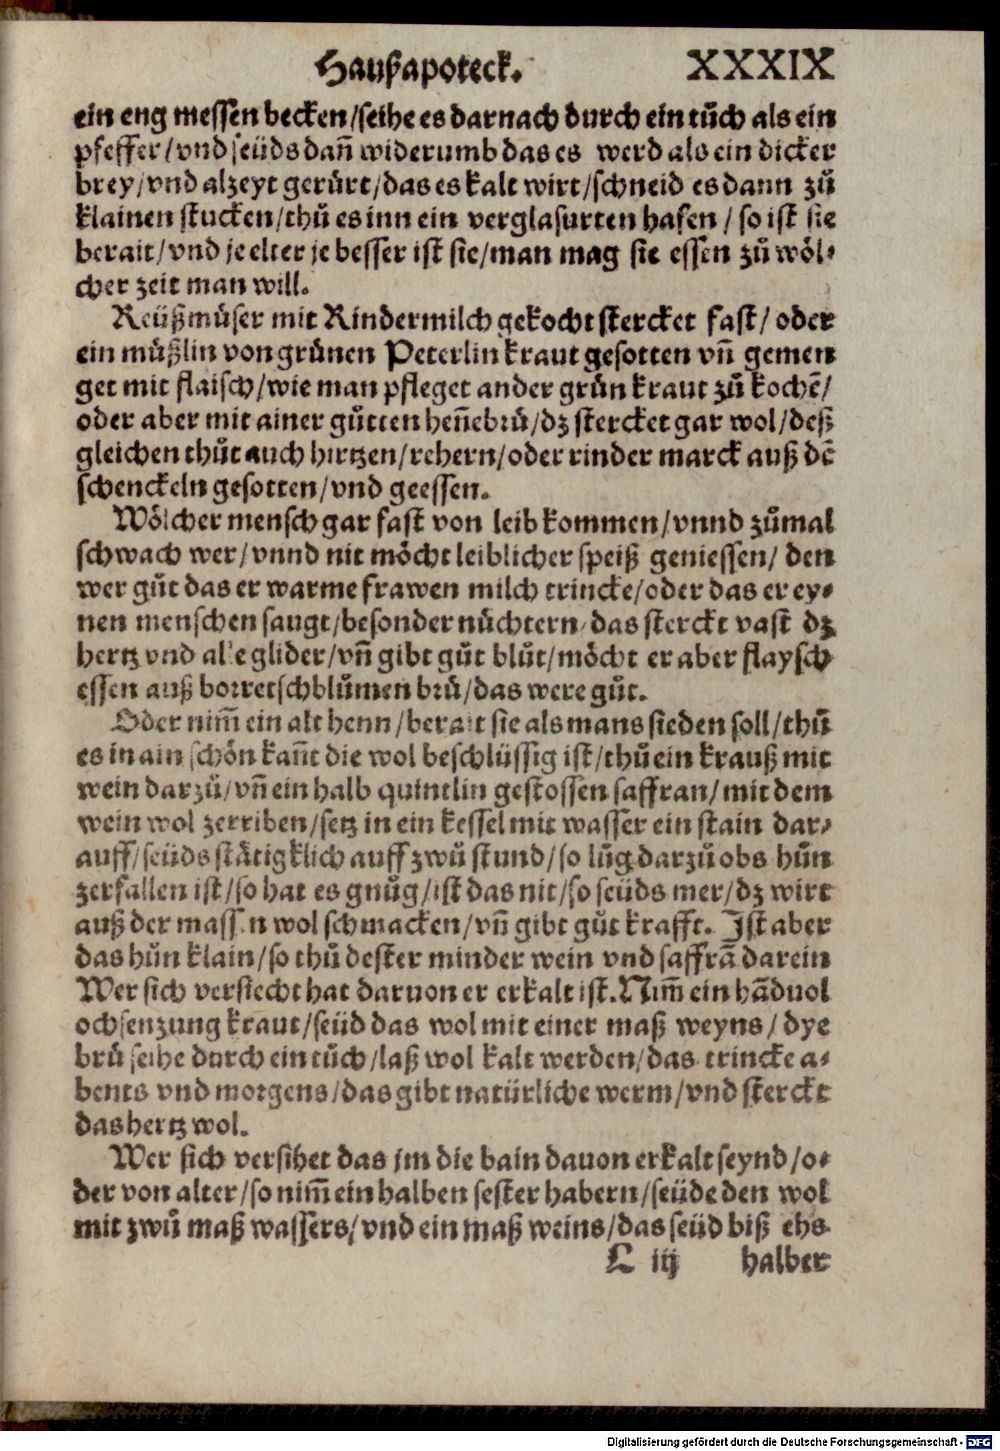 Haußapoteck. XXXIX
ein eng messen becken/seihe es darnach durch ein tůch als ein
pfeffer/vnd seüds dañ widerumb das es werd als ein dicker
brey/vnd alzeyt gerürt/das es kalt wirt/schneid es dann zů
klainen stucken/thů es inn ein verglasurten hafen/so ist sie
berait/vnd je elter je besser ist sie/man mag sie essen zů wöl⸗
cher zeit man will.
Reüßmůser mit Rindermilch gekocht stercket fast/oder
ein můßlin von grůnen Peterlin kraut gesotten vñ gemen
get mit flaisch/wie man pfleget ander grůn kraut zů kochẽ/
oder aber mit ainer gůtten heñebrů/dz stercket gar wol/deß
gleichen thůt auch hirtzen/rehern/oder rinder marck auß dẽ
schenckeln gesotten/vnd geessen.
Wölcher mensch gar fast von leib kommen/vnnd zůmal
schwach wer/vnnd nit möcht leiblicher speiß geniessen/den
wer gůt das er warme frawen milch trincke/oder das er ey⸗
nen menschen saugt/besonder nůchtern/das sterckt vast dz
hertz vnd alle glider/vñ gibt gůt blůt/möcht er aber flaysch
essen auß borretschblůmen brů/das were gůt.
Oder nim̃ ein alt henn/berait sie als mans sieden soll/thů
es in ain schön kañt die wol beschlüssig ist/thů ein krauß mit
wein darzů/vñ ein halb quintlin gestossen saffran/mit dem
wein wol zerriben/setz in ein kessel mit wasser ein stain dar⸗
auff/seüds stätigklich auff zwů stund/so lůg darzů obs hůn
zerfallen ist/so hat es gnůg/ist das nit/so seüds mer/dz wirt
auß der massen wol schmacken/vñ gibt gůt krafft. Ist aber
das hůn klain/so thů dester minder wein vnd saffrã darein
Wer sich verstecht hat daruon er erkalt ist. Nim̃ ein hãduol
ochsenzung kraut/seüd das wol mit einer maß weyns/dye
brů seihe durch ein tůch/laß wol kalt werden/das trincke a⸗
bents vnd morgens/das gibt natürliche werm/vnd sterckt
das hertz wol.
Wer sich versihet das jm die bain dauon erkalt seynd/o⸗
der von alter/so nim̃ ein halben sester habern/seüde den wol
mit zwů maß wassers/vnd ein maß weins/das seüd biß ehs
L iij halber
Digitalisierung gefördert durch die Deutsche Forschungsgemeinschaft - DFG